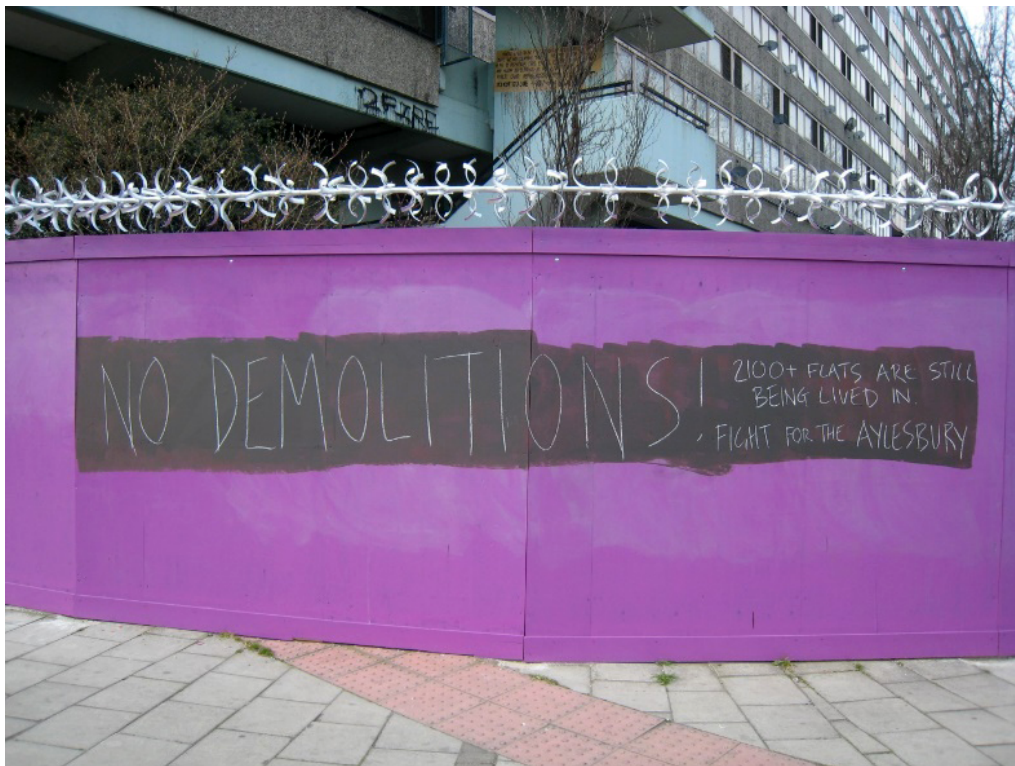 NO DEMOLITIONS!
2100+ FLATS ARE STILL
BEING LIVED IN.
FIGHT FOR THE AYLESBURY